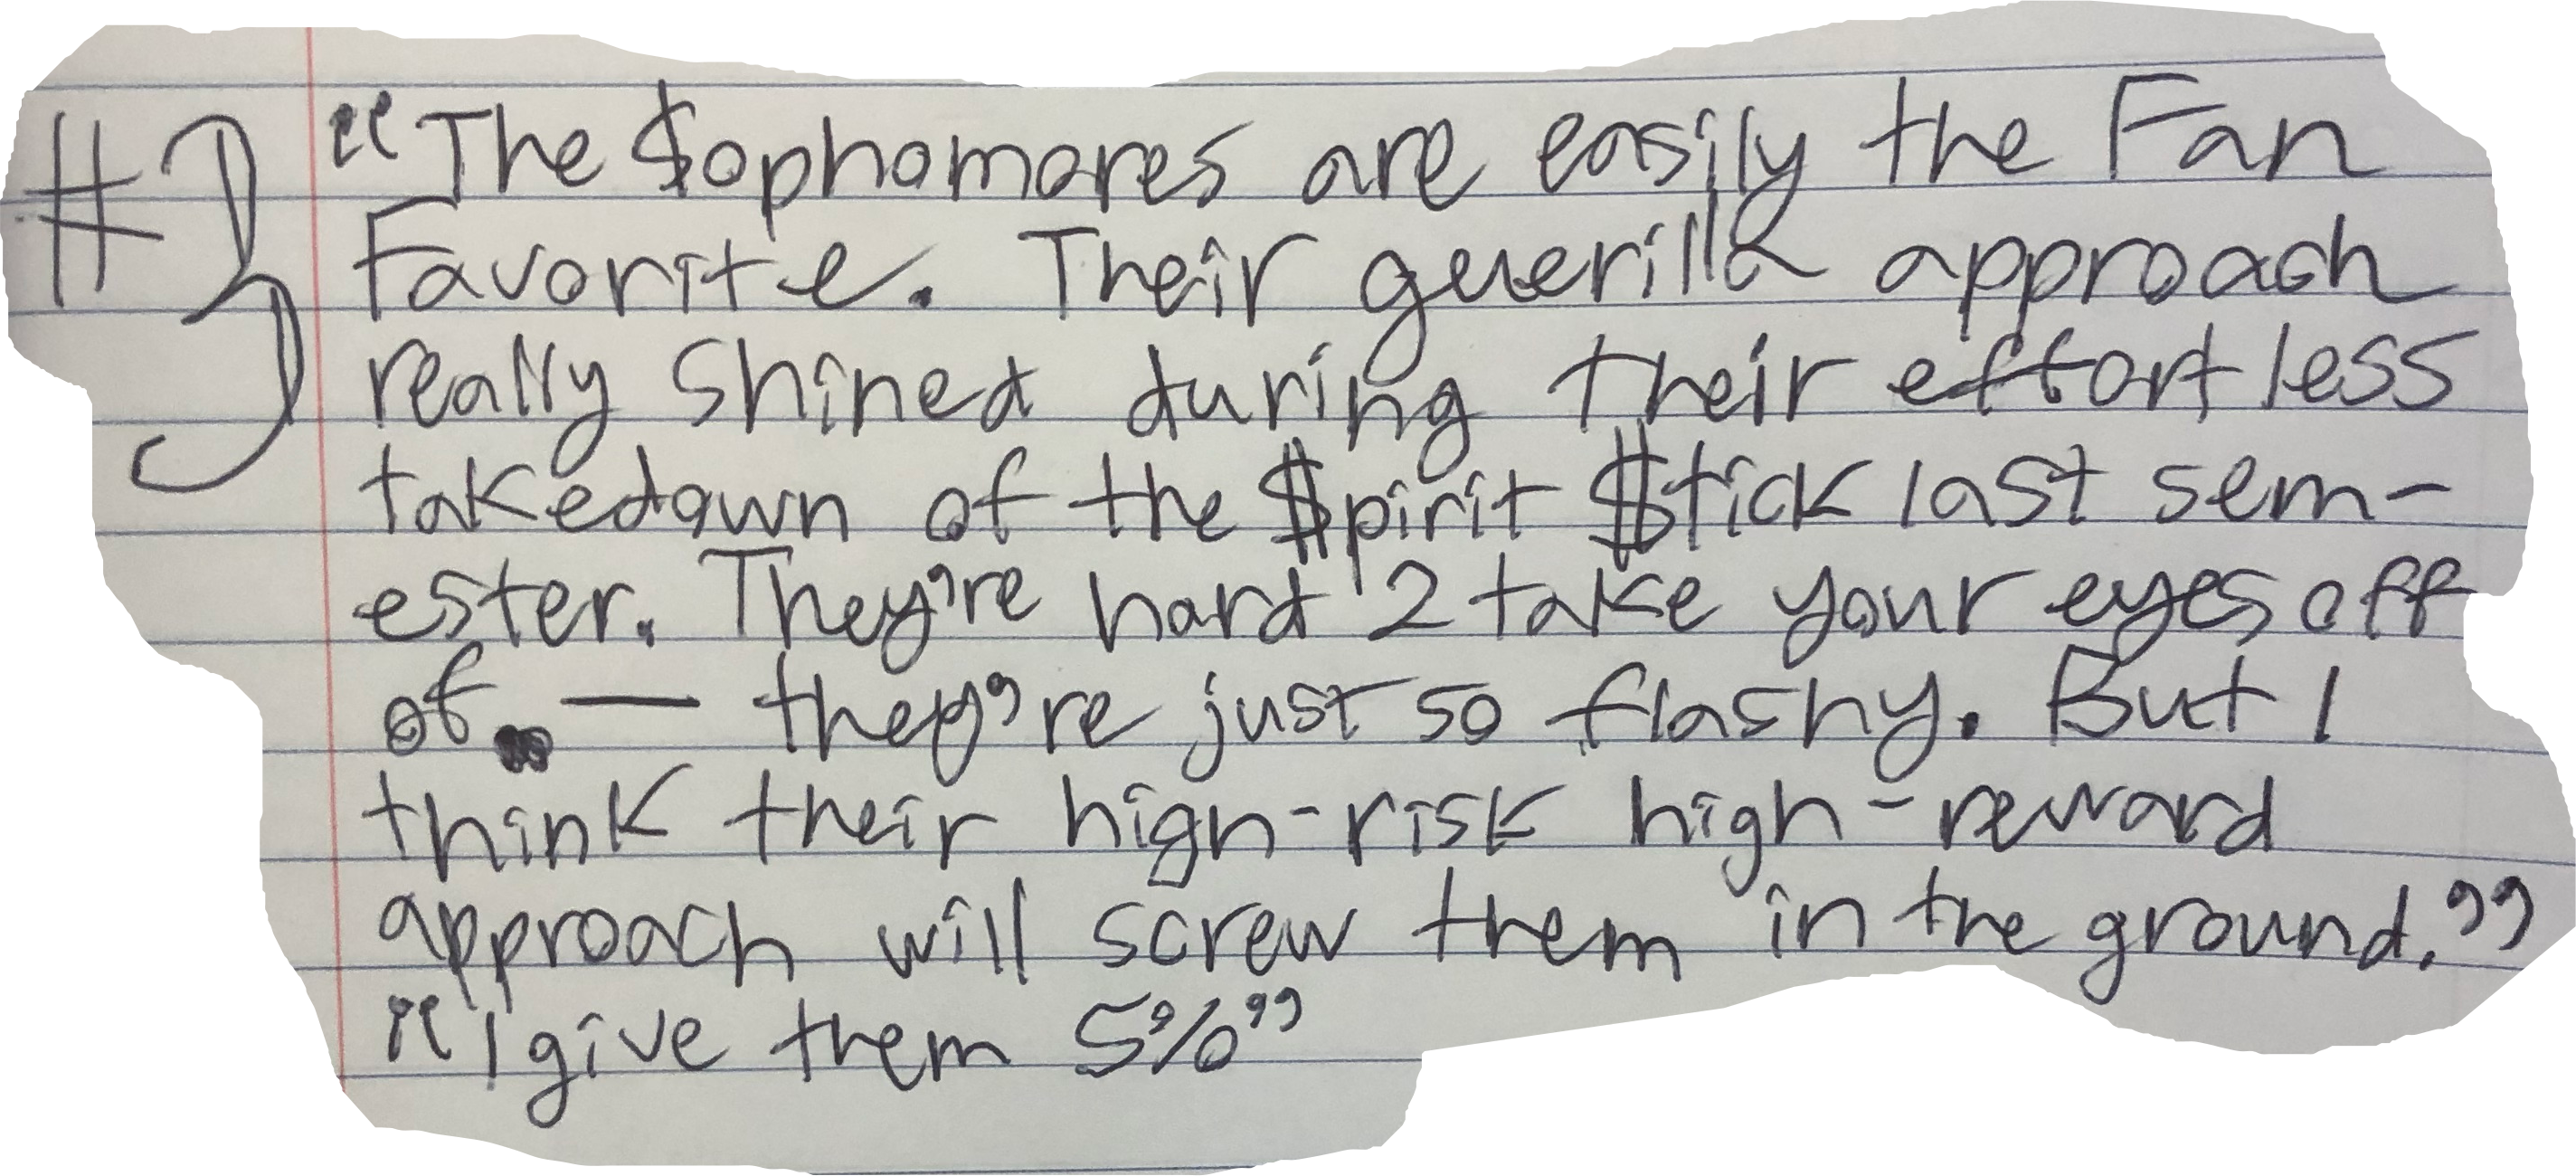 #3 "The $ophomores are easily the Fan
Favorite. Their guerilla approach
really shined during their effortless
takedown of the $pirit $tick last sem-
ester. They're hard 2 take your eyes off
of — they're just so flashy. But I
think their high-risk high-reward
approach will screw them in the ground."
"I give them 5%"